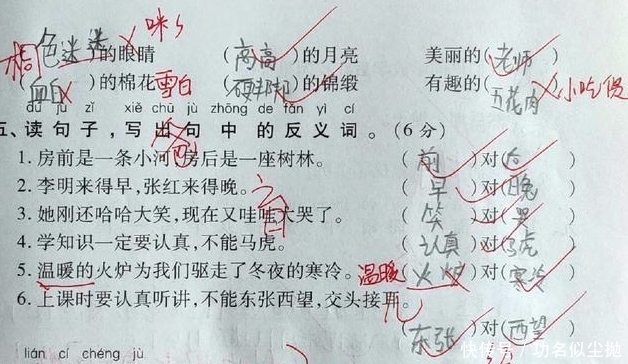 色迷迷的眼睛 咪 (高高)的月亮 美丽的(老师)
(血白)的棉花 雪白 (硬邦邦)的锦缎 有趣的(五花肉) 小吃货
dú jù zǐ xiě chū jù zhōng de fǎn yì cí
五、读句子,写出句中的反义词。(6分)
1. 房前是一条小河,房后是一座树林。 (前)对(后)
2. 李明来得早,张红来得晚。 (早)对(晚)
3. 她刚还哈哈大笑,现在又哇哇大哭了。 (笑)对(哭)
4. 学知识一定要认真,不能马虎。 (认真)对(马虎)
5. 温暖的火炉为我们驱走了冬夜的寒冷。 温暖 (火炉)对(寒冷)
6. 上课时要认真听讲,不能东张西望,交头接耳。
(东张)对(西望)
lián cí chéng jù
快传号/功名似尘抛